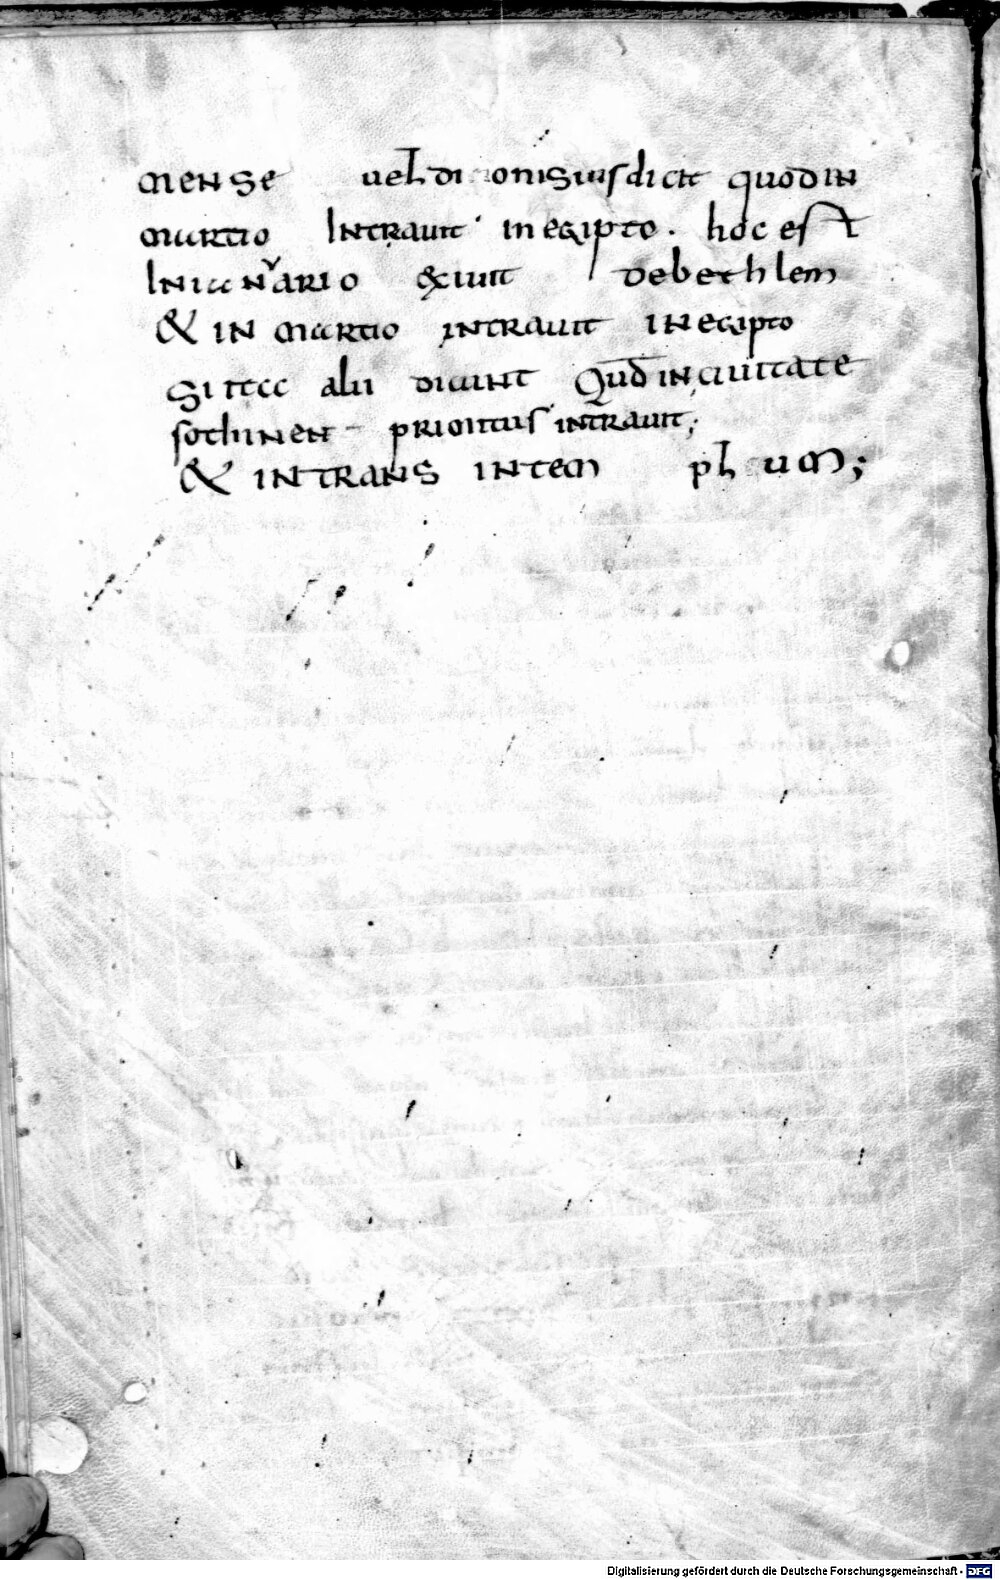 mense uel dionisius dicit quod in
martio intrauit in egipto. hoc est
in ianuario exiuit de bethlem
& in martio intrauit in egipto
alii dicunt Quod in ciuitate
sothinen prioitus intrauit;
& intrans in tem plum;
Digitalisierung gefördert durch die Deutsche Forschungsgemeinschaft - DFG